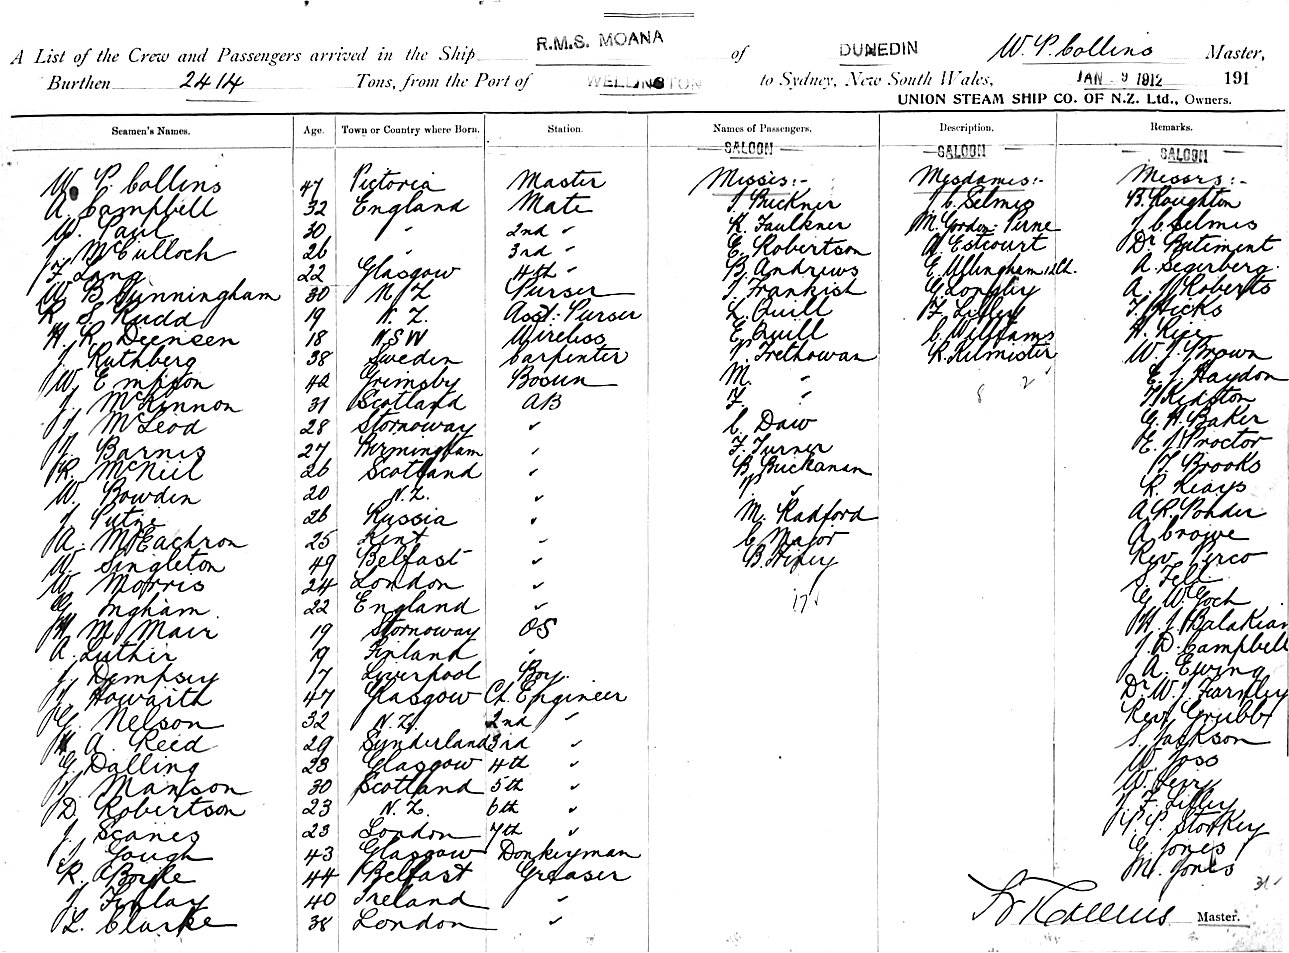 A List of the Crew and Passengers arrived in the Ship R.M.S. MOANA of DUNEDIN W. P. Collins Master,
Burthen 2414 Tons, from the Port of WELLINGTON to Sydney, New South Wales, JAN 9 1912 191
UNION STEAM SHIP CO. OF N.Z. Ltd., Owners.
Seamen's Names. Age. Town or Country where Born. Station. Names of Passengers. Description. Remarks.
SALOON SALOON SALOON
W. P. Collins 47 Victoria Master Misses:- Mesdames:- Messrs:-
A. Campbell 32 England Mate J. Buckner J. C. Selmes B. Roughton
W. Paul 30 " 2nd " K. Faulkner M. Gordon-Pirne J. C. Selmes
J. McCulloch 26 " 3rd " E. Robertson A. Estcourt Dr. Batement
F. Lang 22 Glasgow 4th " B. Andrews E. Uflingham A. Segerberg
W. B. Cunningham 30 N Z Purser J. Frankish G. Lonsby A. J. Roberts
R. S. Rudd 19 N. Z. Asst. Purser L. Quill F. Lilley T. Hicks
H. R. Deensen 18 N S W Wireless E. Quill C. Williams H. Rice
J. Ruthberg 38 Sweden Carpenter P. Trethowan R. Kilmister W. J. Brown
W. Empson 42 Grimsby Bosun M. " 8 2 E. J. Haydon
J. McKinnon 31 Scotland AB F. " Kidston
J. McLeod 28 Stornoway " C. Daw G. H. Baker
J. Barnes 27 Birmingham " F. Turner E. J. Proctor
R. McNeil 26 Scotland " B. Buchanan J. Brooks
W. Bowden 20 N. Z. " " R. Keays
J. Putne 26 Russia " M. Radford A. R. Ponder
A. McEachron 25 Kent " C. Major A. Crowe
W. Singleton 49 Belfast " B. Finey Rev. Perco
W. Morris 24 London " S. Fell
G. Ingham 22 England " 17 G. W. Goch
H. M. Mair 19 Stornoway OS H. J. Balakian
A. Luther 19 Finland " J. D. Campbell
J. Dempsey 17 Liverpool Boy. A. Ewing
J. Howarth 47 Glasgow Ch. Engineer Dr. W. J. Farnley
G. Nelson 32 N. Z. 2nd " Rev. Grubb
H. A. Reed 29 Sunderland 3rd " S. Jackson
G. Dalling 23 Glasgow 4th " W. Joss
J. Manson 30 Scotland 5th " W. Perry
D. Robertson 23 N. Z. 6th " J. F. Lilley
J. Scanes 23 London 7th " P. P. Storkey
J. Gough 43 Glasgow Donkeyman G. Jones
R. Boyle 44 Belfast Greaser M. Jones
J. Finlay 40 Ireland " 31
L. Clarke 38 London " W P Collins Master.